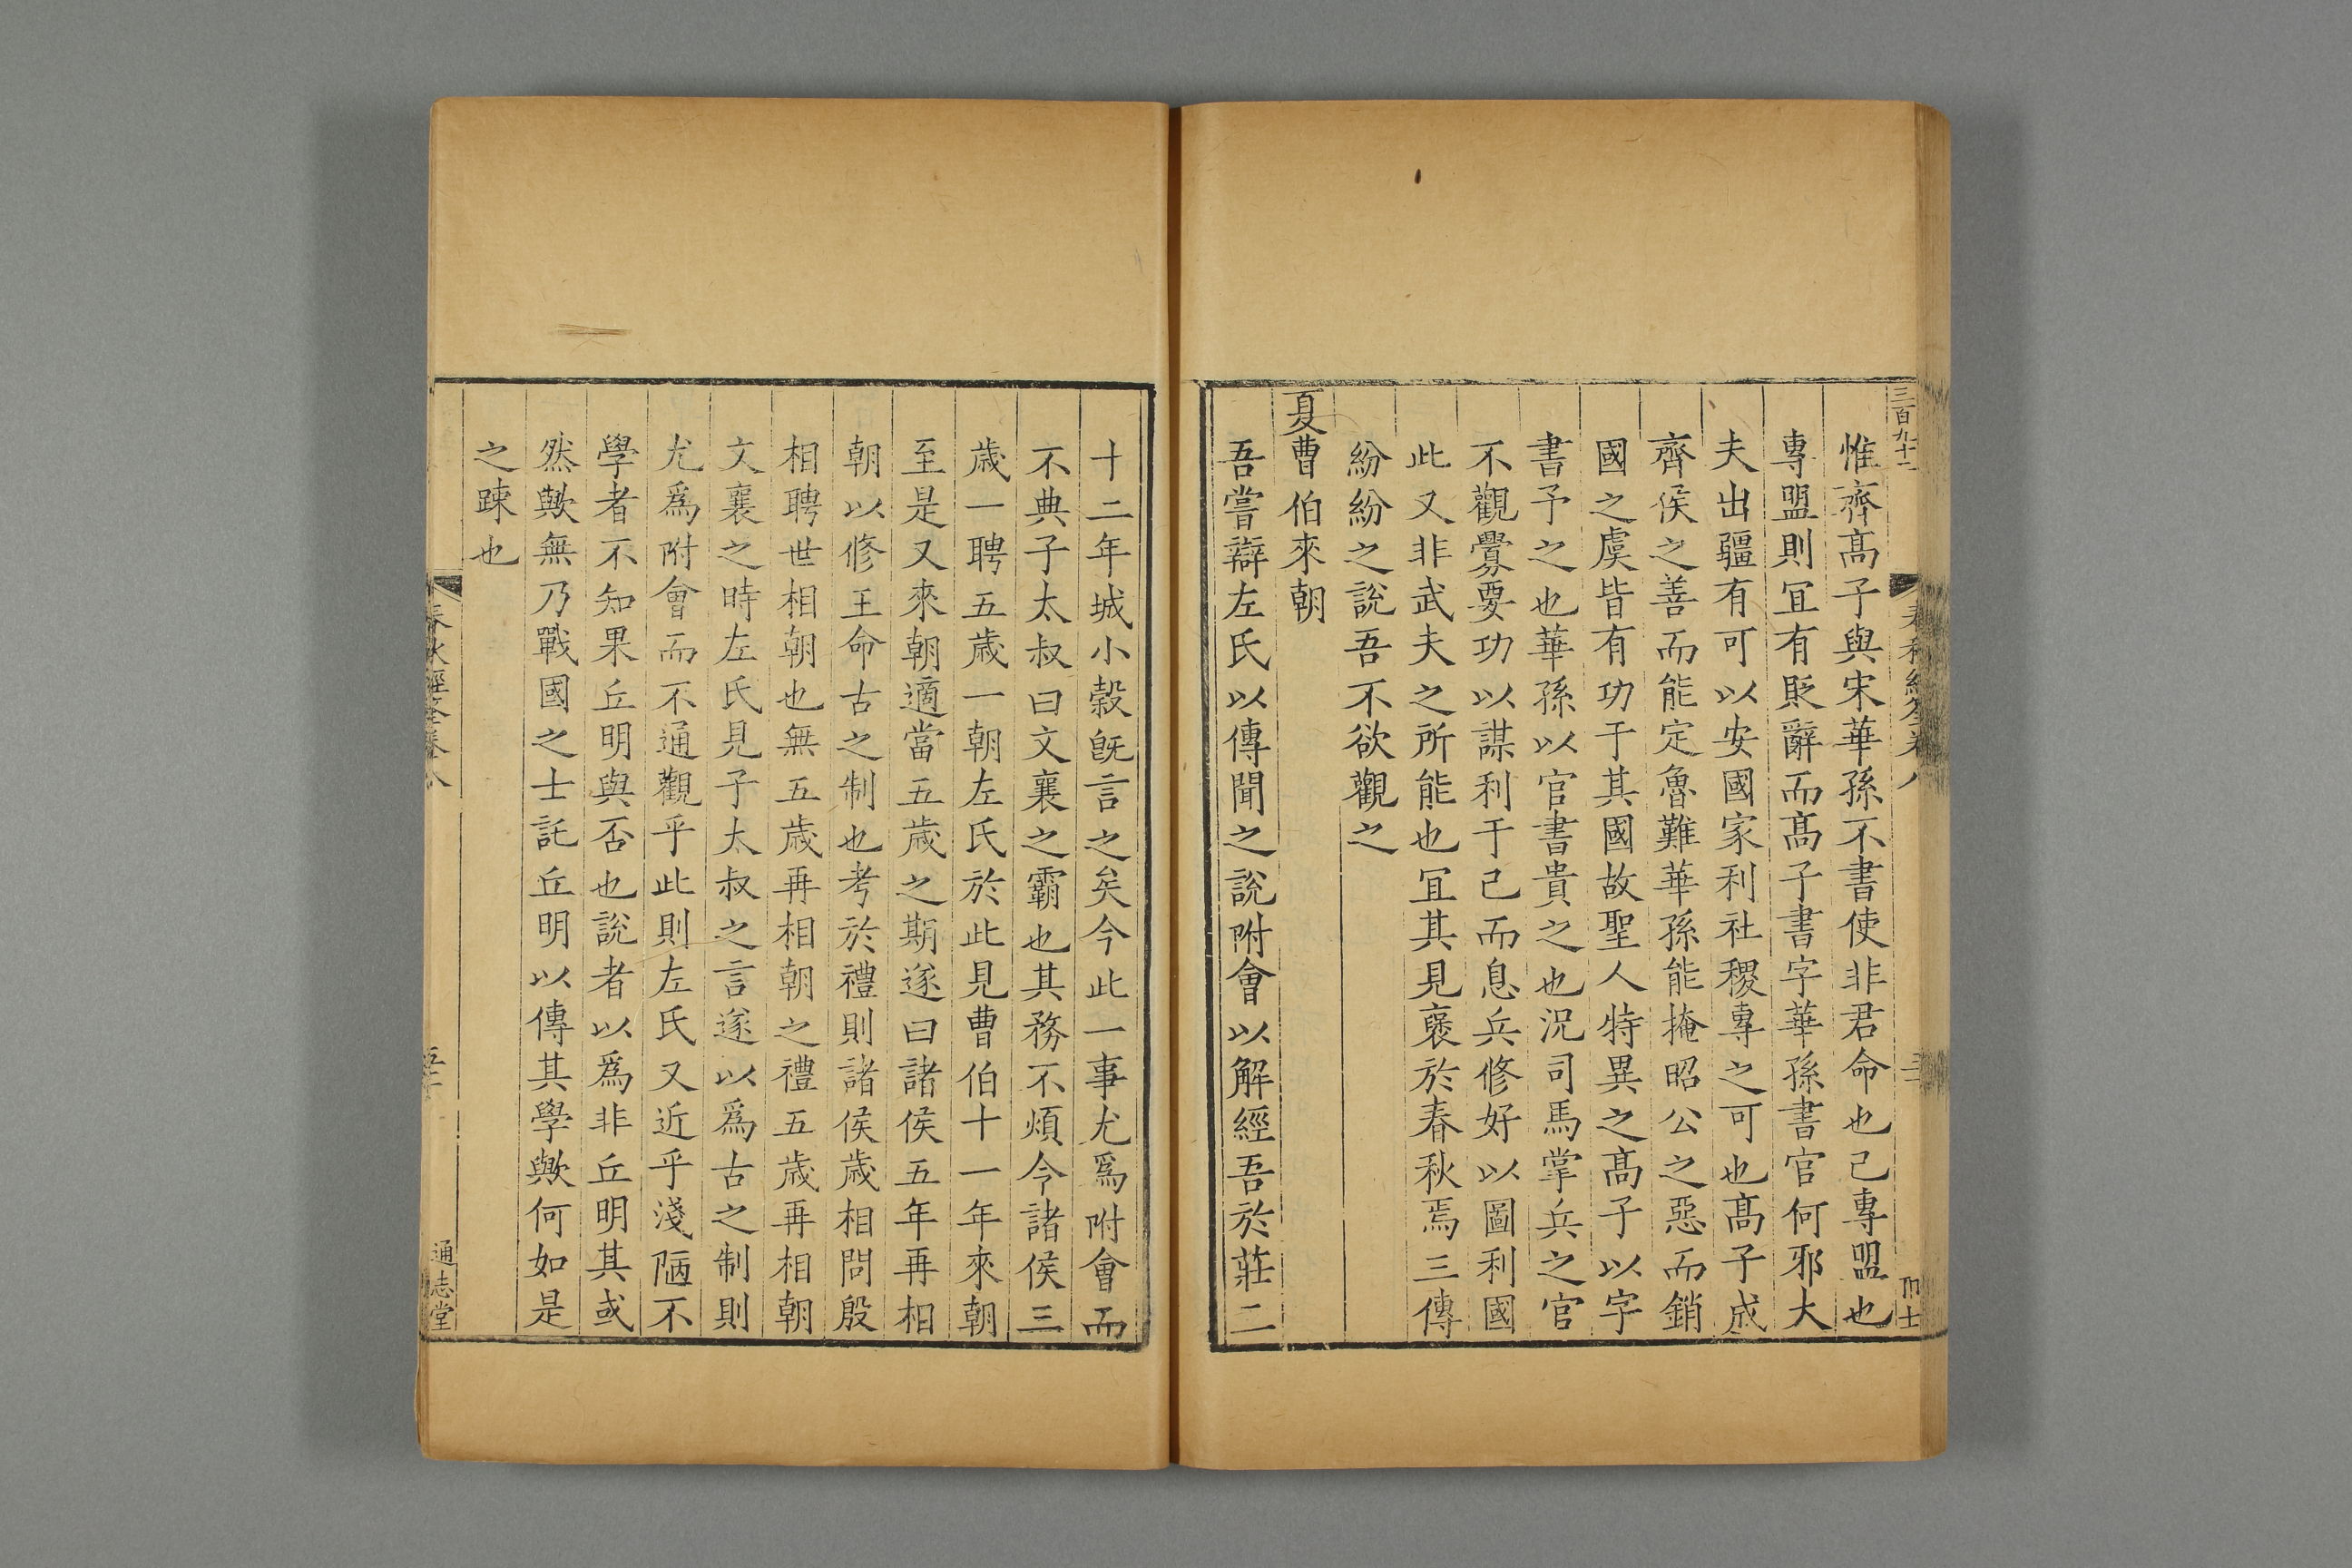 三百九十二
惟齊髙子與宋華孫不書使非君命也己專盟也
專盟則冝有貶辭而髙子書字華孫書官何邪大
夫出疆有可以安國家利社稷專之可也髙子成
齊侯之善而能定魯難華孫能掩昭公之惡而銷
國之虞皆有功于其國故聖人特異之髙子以字
書予之也華孫以官書貴之也況司馬掌兵之官
不觀釁要功以謀利于己而息兵修好以圖利國
此又非武夫之所能也冝其見襃於春秋焉三傳
紛紛之說吾不欲觀之
夏曹伯來朝
吾嘗辯左氏以傳聞之說附會以解經吾於莊二
十二年城小穀旣言之矣今此一事尤爲附會而
不典子太叔曰文襄之霸也其務不煩今諸侯三
歲一聘五歲一朝左氏於此見曹伯十一年來朝
至是又來朝適當五歲之期遂曰諸侯五年再相
朝以修王命古之制也考於禮則諸侯歲相問殷
相聘世相朝也無五歲再相朝之禮五歲再相朝
文襄之時左氏見子太叔之言遂以爲古之制則
尤爲附會而不通觀乎此則左氏又近乎淺陋不
學者不知果丘明與否也說者以爲非丘明其或
然歟無乃戰國之士託丘明以傳其學歟何如是
之踈也
通志堂